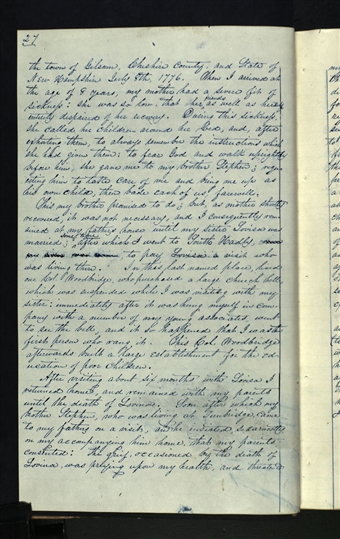 27
the town of Gilsum, Cheshire County, and State of
New Hampshire July 8th, 1776. When I arrived at
the age of 8 years, my mother had a severe fit of
sickness: she was so low that her friends as well as herself
entirely dispaired of her recovery. During this sickness,
she called her children around her bed, and, after
exhorting them, to always remember the instructions which
she had given them: to fear God and walk uprightly
before him; she gave me to my brother Stephen; requ-
esting him to take care of me and bring me up as
his own child, then bade each of us farewell.
This my brother promised to do; but, as mother shortly
recovered, it was not necessary, and I consequently rem-
ained at my fathers house until my sister Lovisa was
married; some time after which I went to South Hadly
to pay Lovisa a visit who
was living there. In this last named place, lived
one Col. Woodbridge, who purchased a large church bell
which was suspended while I was visiting with my
sister: immediately after it was hung myself in com-
pany with a number of my young associates, went
to see the bell, and it so happened that I was the
first person who rang it. This Col. Woodbridge
afterwards built a large establishment for the ed-
ucation of poor children.
After visiting about six months with Lovisa I
returned home, and remained with my parents
until the death of Lovina. Soon after which my
brother Stephen, who was living at Tunbridge came
to my father on a visit; and he insisted so earnestly
on my accompanying him home, that my parents
consented: The grief, occasioned by the death of
Lovina, was preying upon my health, and threatened